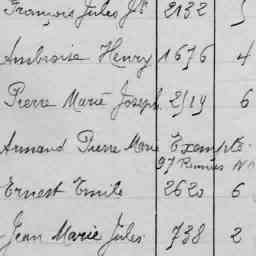 François Jules Js 2132
Ambroise Henry 1676 4
Pierre Marie Joseph 2519 6
Armand Pierre Marie Exempté
97 Rennes
Ernest Emile 2620 6
Jean Marie Jules 738 2